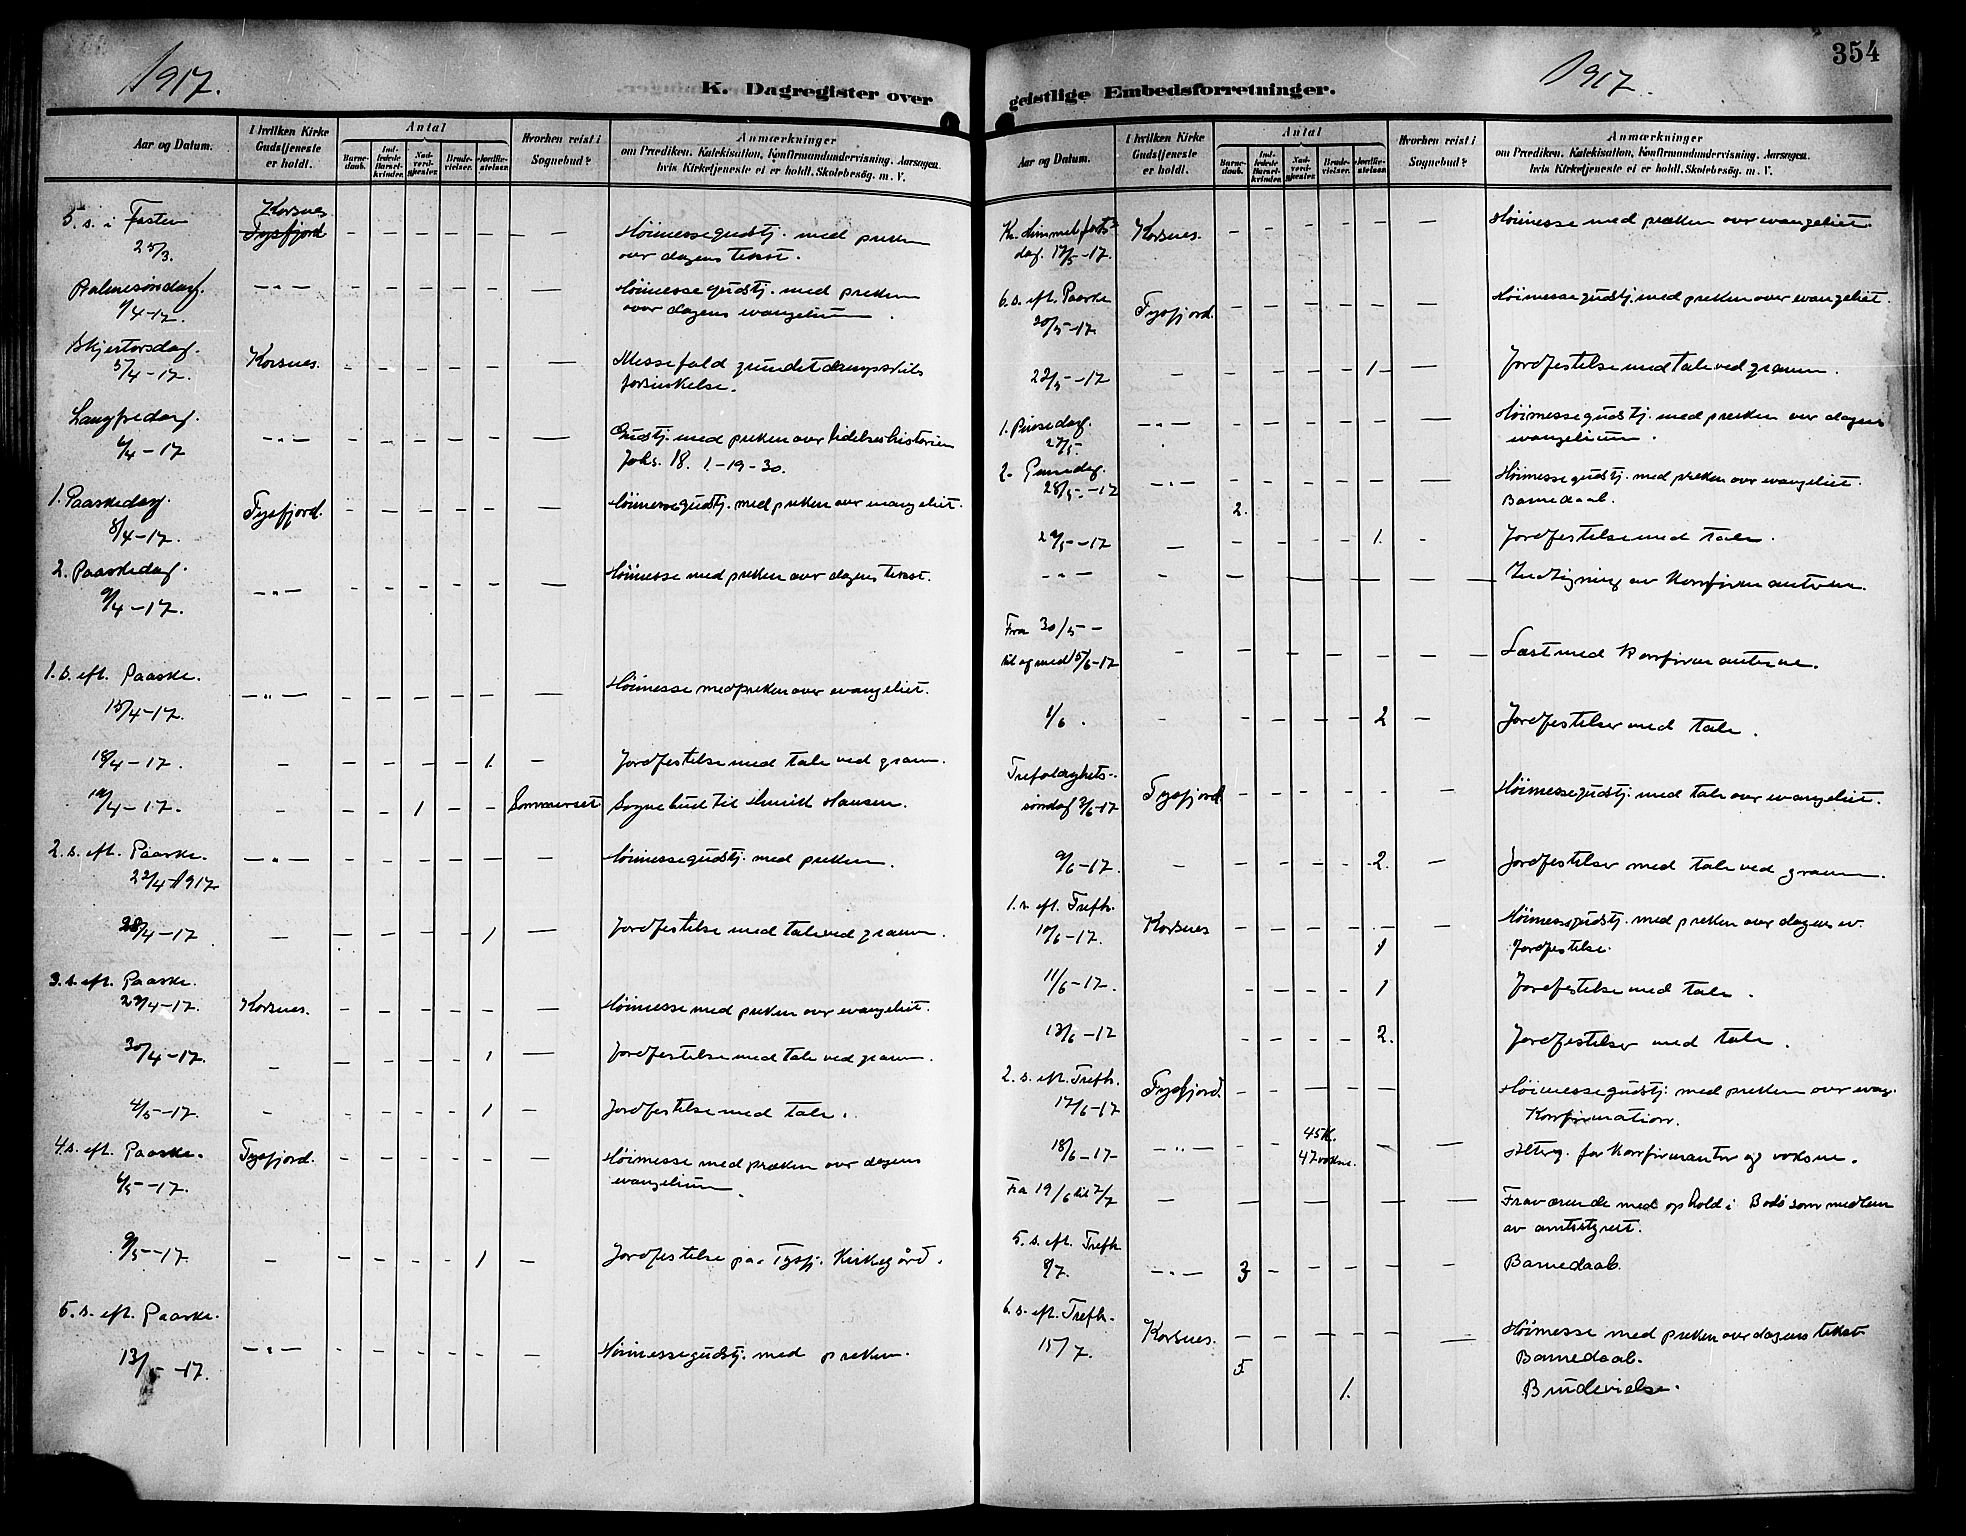 1917.
K. Dagregister over
Aar og Datum.
I hvilken Kirke
Gudstjeneste
er holdt.
Antal
Barne-
daab.
Ind-
ledede
Barsel-
kvinder.
Nad-
verd-
gjester.
Brude-
vielser.
Jordfæ-
stelser.
Hvorhen reist i
Sognebud?
Anmærkninger
om Prædiken, Katekisation, Konfirmandundervisning, Aarsagen,
hvis Kirketjeneste ei er holdt, Skolebesøg, m. V.
5. s. i Fasten
25/3.
Korsnes
Tysfjord
— — — — — —
Høimessegudstj. med preken
over dagens tekst.
Palmesøndag.
1/4-17.
— „ — — — — — — —
Høimessegudstj. med preken
over dagens evangelium.
Skjertorsdag.
5/4-17.
Korsnes. — — — — — —
Messefald grundet dampskibs
forsinkelse.
Langfredag.
6/4-17
— „ — — — — — — —
Gudstj. med preken over lidelseshistorien
Johs. 18. 1-19-30.
1. Paaskedag.
8/4-17.
Tysfjord. — — — — — —
Høimessegudstj. med preken over evangeliet.
2. Paaskedag.
9/4-17.
— „ — — — — — — —
Høimesse med preken over dagens tekst.
1. s. eft. Paaske.
15/4-17.
— „ — — — — — — —
Høimesse med preken over evangeliet.
18/4-17. — — — — — 1. — Jordfestelse med tale ved graven.
19/4-17. — — — 1 — — Sommerset Sognebud til Hansen.
2. s. eft. Paaske.
22/4-1917
— „ — — — — — — —
Høimessegudstj. med preken.
28/4-17 — — — — — 1 — Jordfestelse med tale ved graven.
3. s. eft. Paaske.
29/4-17. Korsnes. — — — — — — Høimesse med preken over evangeliet.
30/4-17. — — — — — 1 — Jordfestelse med tale ved graven.
4/5-17. — — — — — 1 — Jordfestelse med tale.
4. s. eft. Paaske.
6/5-17.
Tysfjord. — — — — — —
Høimesse med præken over dagens
evangelium.
9/5-17. — — — — — 1 — Jordfestelse paa Tysfj. Kirkegård.
5. s. eft. Paaske.
13/5-17.
— „ — — — — — — —
Høimessegudstj. med preken.
354
1917.
geistlige Embedsforretninger.
Aar og Datum.
I hvilken Kirke
Gudstjeneste
er holdt.
Antal
Barne-
daab.
Ind-
ledede
Barsel-
kvinder.
Nad-
verd-
gjester.
Brude-
vielser.
Jordfæ-
stelser.
Hvorhen reist i
Sognebud?
Anmærkninger
om Prædiken, Katekisation, Konfirmandundervisning, Aarsagen,
hvis Kirketjeneste ei er holdt, Skolebesøg, m. V.
Kr. Himmelfarts-
dag. 17/5-17.
Korsnes. — — — — — —
Høimesse med præken over evangeliet.
6. s. eft. Paaske
20/5-17.
Tysfjord. — — — — — —
Høimessegudstj. med preken over evangeliet.
22/5-17 — — — — — 1 — Jordfestelse med tale ved graven.
1. Pinsedag.
27/5-
— „ — — — — — — —
Høimessegudstj. med preken over dagens
evangelium.
2. Pinsedag.
28/5-17
— „ — 2. — — — — —
Høimessegudstj. med preken over evangeliet.
Barnedaab.
29/5-17 — — — — — 1. - Jordfestelse med tale.
— „ — — — — — — — — Indtegning av konfirmantene.
Fra 30/5 -
til og med 15/6-17
— — — — — — —
Læst med konfirmantene.
1/6. — — — — — 2 — Jordfestelser med tale.
Trefoldighets-
søndag 3/6-17
Tysfjord — — — — — —
Høimessegudstj. med tale over evangeliet.
9/6-17. — — — — — 2. — Jordfestelser med tale ved graven.
1. s. eft. Trefh.
10/6-17.
Korsnes — — — — 1 —
Høimessegudstj. med preken over dagens ev.
Jordfestelse.
11/6-17. — — — — 1 Jordfestelse med tale.
13/6-17 — — — — 2. Jordfestelser med tale.
2. s. eft. Trefh.
17/6-17
Tysfjord. — — — — —
Høimessegudstj. med preken over evang.
Konfirmation.
18/6-17- — „ — — — 45 K.
47 voksne. — — Alterg. for konfirmanter og voksne.
Fra 19/6 til 7/7 — — — — — — —
Fraværende med ophold i Bodø som medlem
av amtstyret.
5. s. eft. Trefh
8/7.
— „ — 3 — — — — — Barnedaab.
6. s. eft. Trefh.
15/7.
Korsnes. — — — — — —
Høimesse med preken over dagens tekst
5 Barnedaab.
1. Brudevielse.